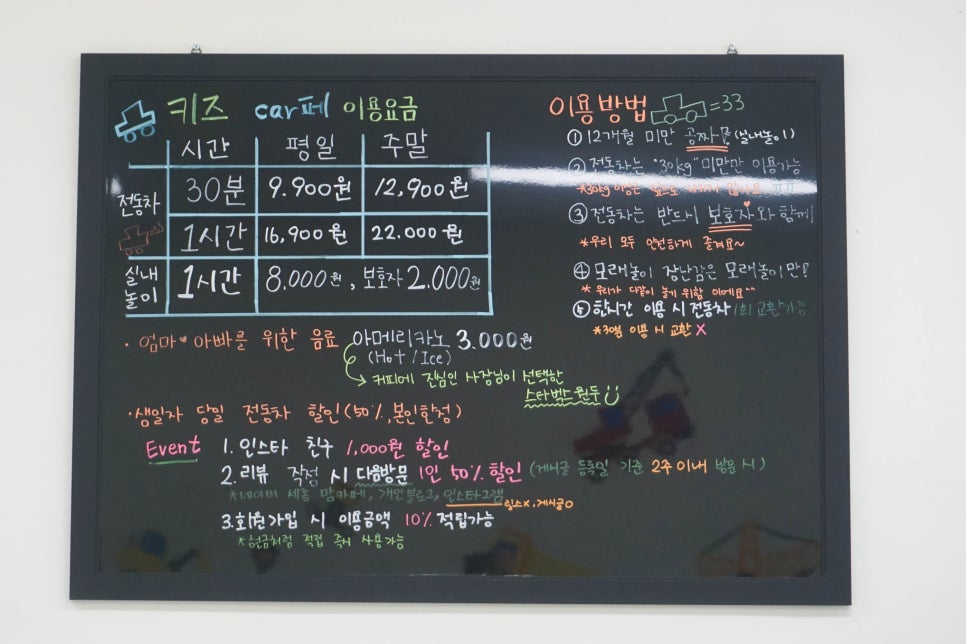 키즈 car페 이용요금
시간 평일 주말
전동차 30분 9.900원 12,900원
1시간 16,900원 22.000원
실내놀이 1시간 8.000원, 보호자 2.000원
· 엄마♥아빠를 위한 음료 아메리카노 3.000원
(Hot / Ice)
커피에 진심인 사장님이 선택한
스타벅스 원두
· 생일자 당일 전동차 할인(50%, 본인한정)
Event 1. 인스타 친구 1,000원 할인
2. 리뷰 작성 시 다음방문 1인 50% 할인 (게시글 등록일 기준 2주 이내 방문 시)
*네이버 세종 맘카페, 개인블로그, 인스타그램
링스x, 게시글o
3. 회원가입 시 이용금액 10% 적립가능
*현금처럼 적접 즉시 사용가능
이용방법 =33
① 12개월 미만 공짜!! (실내놀이)
② 전동차는 "30kg" 미만만 이용가능
*30kg 이상은
③ 전동차는 반드시 보호자와 함께
*우리 모두 안전하게 즐겨요~
④ 모래놀이 장난감은 모래놀이만!
*우리가 다같이 놀기 위함 이에요^^
⑤ 한시간 이용 시 전동차 1회 교환가능
*30분 이용 시 교환 X